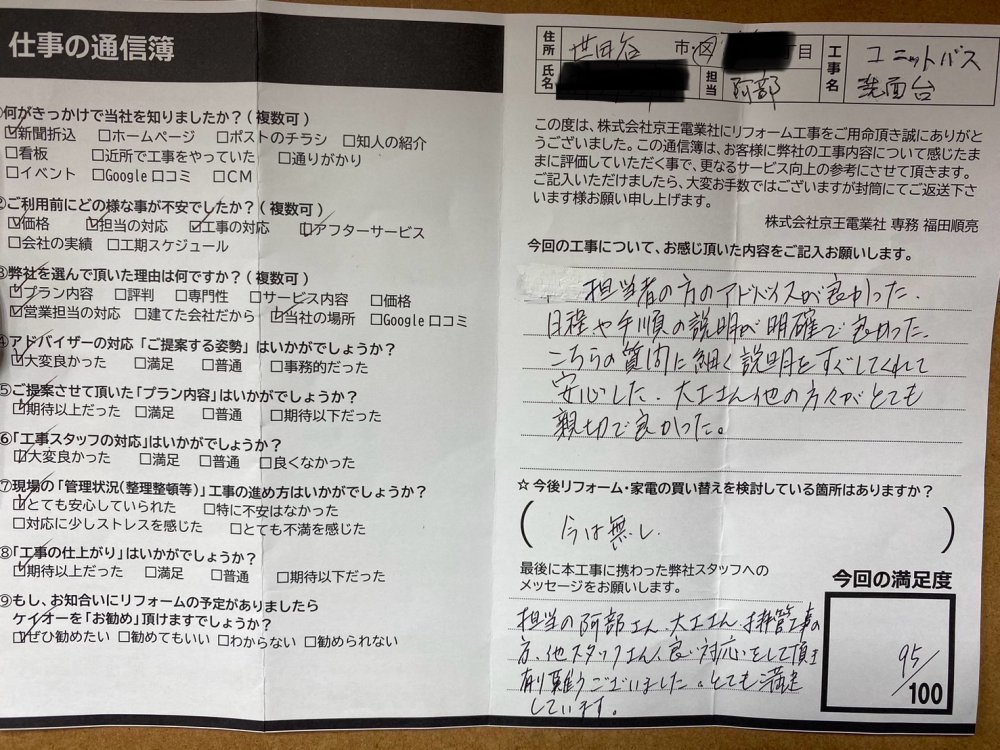 仕事の通信簿
何がきっかけで当社を知りましたか？(複数可)
☑新聞折込 □ホームページ □ポストのチラシ □知人の紹介
□看板 □近所で工事をやっていた □通りがかり
□イベント □Google口コミ □CM
②ご利用前にどの様な事が不安でしたか？(複数可)
☑価格 ☑担当の対応 ☑工事の対応 ☑アフターサービス
□会社の実績 □工期スケジュール
③弊社を選んで頂いた理由は何ですか？(複数可)
☑プラン内容 □評判 □専門性 □サービス内容 □価格
☑営業担当の対応 □建てた会社だから ☑当社の場所 □Google口コミ
④アドバイザーの対応「ご提案する姿勢」はいかがでしょうか？
☑大変良かった □満足 □普通 □事務的だった
⑤ご提案させて頂いた「プラン内容」はいかがでしょうか？
☑期待以上だった □満足 □普通 □期待以下だった
⑥「工事スタッフの対応」はいかがでしょうか？
☑大変良かった □満足 □普通 □良くなかった
⑦現場の「管理状況(整理整頓等)」工事の進め方はいかがでしょうか？
☑とても安心していられた □特に不安はなかった
□対応に少しストレスを感じた □とても不満を感じた
⑧「工事の仕上がり」はいかがでしょうか？
☑期待以上だった □満足 □普通 □期待以下だった
⑨もし、お知合いにリフォームの予定がありましたら
ケイオーを「お勧め」頂けますでしょうか？
☑ぜひ勧めたい □勧めてもいい □わからない □勧められない
住所 世田谷 市・区 目
氏名 担当 阿部
工事名 ユニットバス
洗面台
この度は、株式会社京王電業社にリフォーム工事をご用命頂き誠にありがと
うございました。この通信簿は、お客様に弊社の工事内容について感じたま
まに評価していただく事で、更なるサービス向上の参考にさせて頂きます。
ご記入いただけましたら、大変お手数ではございますが封筒にてご返送下さ
います様お願い申し上げます。
株式会社京王電業社 専務 福田順亮
今回の工事について、お感じ頂いた内容をご記入お願いします。
担当者の方のアドバイスが良かった.
日程や手順の説明が明確で良かった.
こちらの質問に細く説明をすぐしてくれて
安心した. 大工さん他の方々がとても
親切で良かった。
☆今後リフォーム・家電の買い替えを検討している箇所はありますか？
(今は無し.)
最後に本工事に携わった弊社スタッフへの
メッセージをお願いします。
担当の阿部さん、大工さん、排管工事の
方、他スタッフさん、良い対応をして頂き
有り難うございました。とても満足
しています。
今回の満足度
95/100